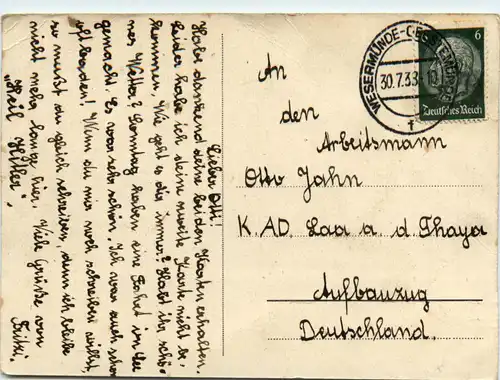 Lieber Otti!
Habe dankend deine beiden Karten erhalten.
Leider habe ich deine zweite Karte nicht be-
kommen. Wie geht es dir immer? Habt ihr schö-
nes Wetter? Sonntag haben wir eine Fahrt in See
gemacht. Es war sehr schön. Ich war auch schon
oft baden! Wenn du mir noch schreiben willst,
so mußt du gleich schreiben, denn ich bleibe
nicht mehr lange hier. Viele Grüße von
„Heil Hitler“, Fritzi.
An
den
Arbeitsmann
Otto Jahn
K.AD. Laa a. d. Thaya
Aufbauzug
Deutschland.
WESERMÜNDE-GEESTEMÜNDE
30.7.38
6
Deutsches Reich